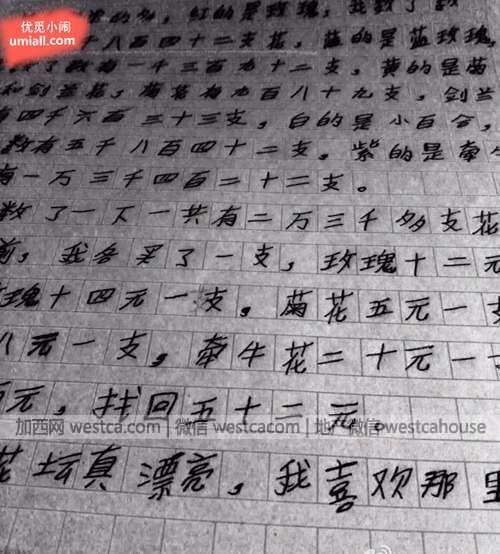 优觅小闹
umiall.com
的多，红的是玫瑰，我数了数
千八百四十二支花，蓝的是蓝玫瑰，
了数有一千三百九十二支，黄的是菊
和剑兰花，菊花有九百八十九支，剑兰
有四千六百三十三支，白的是小百合，
数有五千八百四十二支。紫的是牵牛
有一万三千四百二十二支。
数了一下一共有二万三千多支花
前，我各买了一支，玫瑰十二元
瑰十四元一支。菊花五元一支
八元一支，牵牛花二十元一
元，找回五十二元。
加西网 westca.com | 微信 westcacom | 地产微信 westcahouse
花坛真漂亮，我喜欢那里